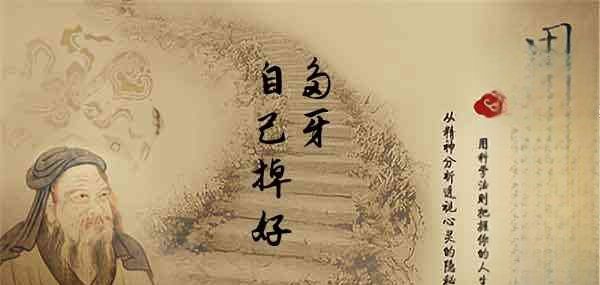 多牙
自己掉好
用科学法则把握你的人生
从精神分析透视心灵的隐秘